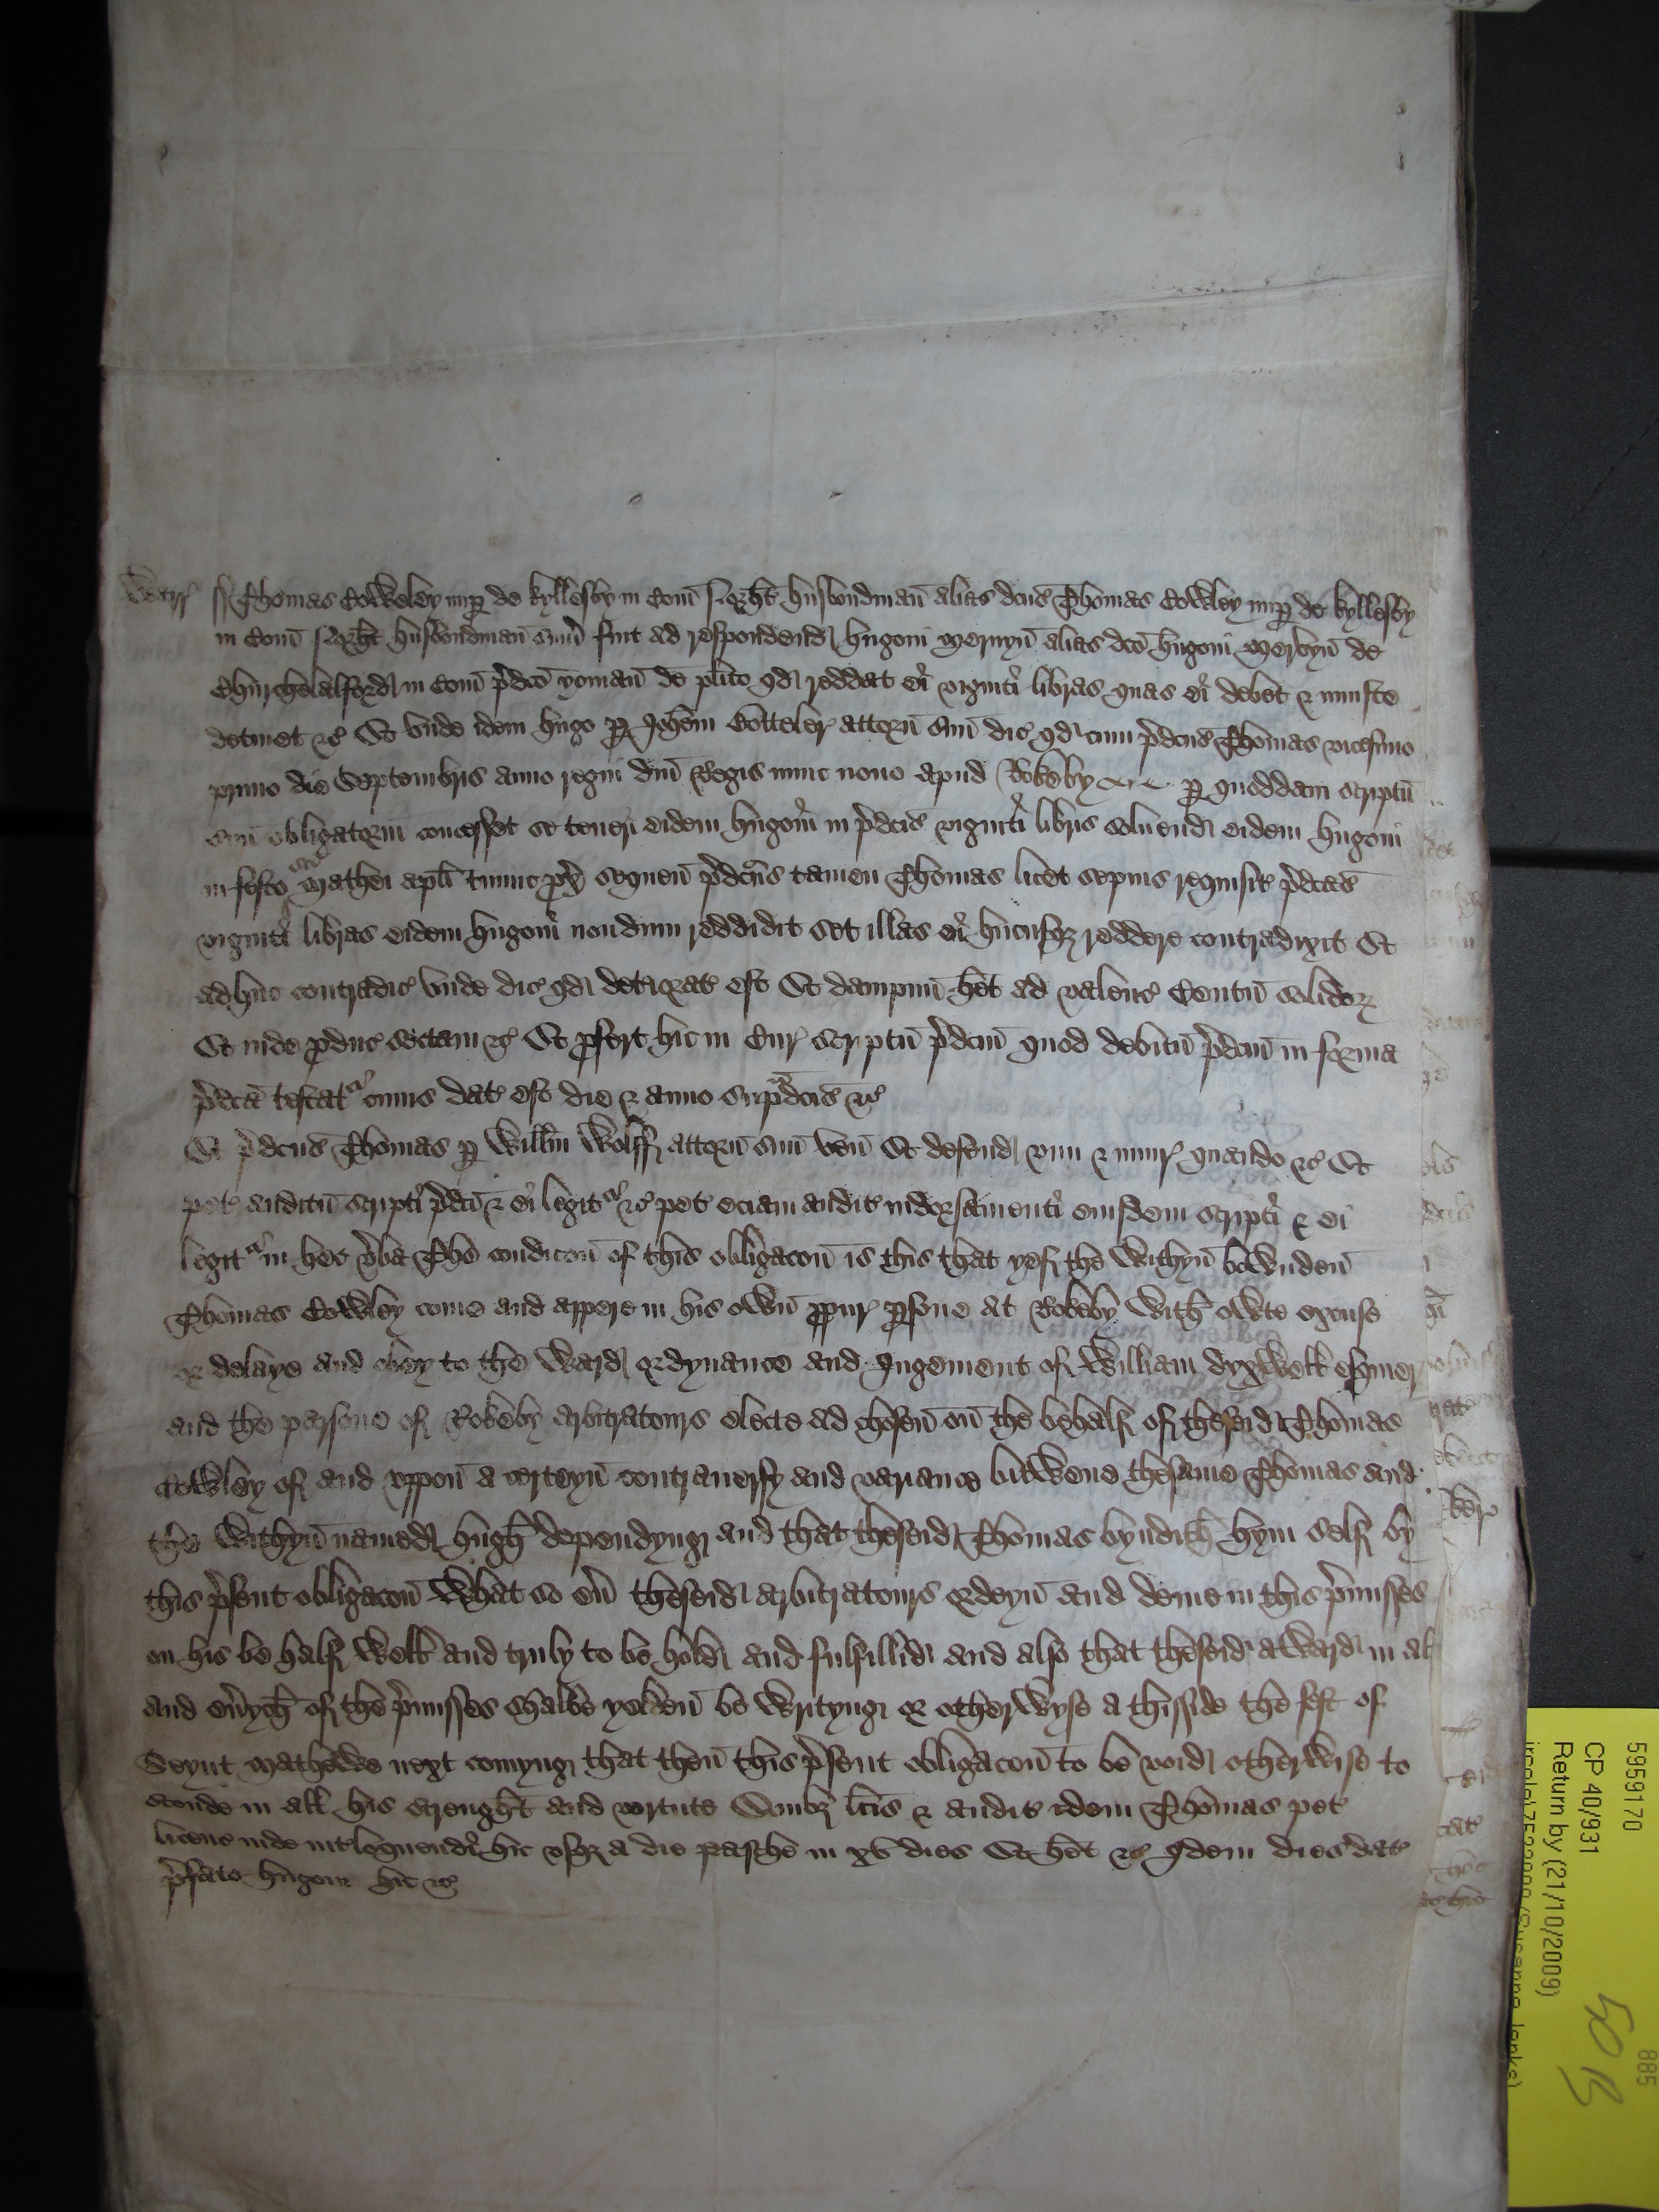 Warr
ss Thomas Cowkeley nup de Kyllesby in Com Northt husbondman alias dcus Thomas Cowley nup de kyllesby
in Com Northt husbondman sum fuit ad respondend hugoni Mervyn alias dco hugoni Merbyn de
Churchelalford in Com pdco yoman de plito qd reddat ei viginti libras quas ei debet & iniuste
detinet &c Et unde idem hugo p Johem Botteler attorn suu dic qd cum pdcus Thomas vicesimo
primo die Septembris anno regni dni Regis nunc nono apud Rokeby p quoddam scriptu
suu obligatoriu concesset se teneri eidem hugoni in pdcis viginti libris solvend eidem hugoni
in festo sci Mathei apli tunc px sequen pdcus tamen Thomas licet sepius requisit pdcas
viginti libras eidem hugoni nondum reddidit set illas ei hucusq reddere contradixit Et
adhuc contradic unde dic qd deteriorat est Et dampnu het ad valenc Centu solidor
Et inde pduc sectam &c Et pfert hic in Cur scriptu pdcm quod debitu pdcm in forma
pdca testat cuius dat est die & anno supadcis &c
Et pdcus Thomas p Willm Wolff attorn suu ven Et defend vim & iniur quando &c Et
pet auditu scripti pdci & ei legit &c pet eciam audit indorsamenti eiusdem scripti & ei
legit in hec vba The condicon of this obligacon is this that yef the withyn bownden
Thomas Cowley come and appere in his own ppur psone at Rokeby with owte excuse
or delaye and obey to the Ward ordynance and Jugement of William dyxwell esquier
and the parsone of Rokeby arbitratours electe ad chosen on the behalf of theseid Thomas
Cowley of and uppon a certeyn contrauersy and variance bitwene thesame Thomas and
the withyn named hugh dependyng and that theseid Thomas byndith hym self by
this psent obligacon What so eu theseid arbitratours ordeyn and deme in this pmisses
on his be half well and truly to be hold and fulfillid and also that theseid award in al
and euych of the pmisses shalbe yolden be writyng or otherwyse a thisside the fest of
Seynt Mathewe next comyng that then this psent obligacon to be void otherwise to
stonde in all his strenght and vertute Quib lcis & audit idem Thomas pet
licenc inde interloquendi hic usq a die pasche in xv dies Et het &c Idem dies dat
pfato hugoni hic &c
5959170
CP 40/931
Return by (21/10/2009)
885